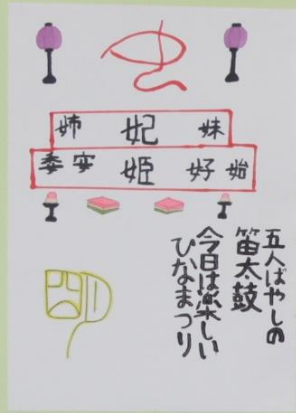 姉 妃 妹
委 安 姫 好 始
五人ばやしの
笛太鼓
今日は楽しい
ひなまつり